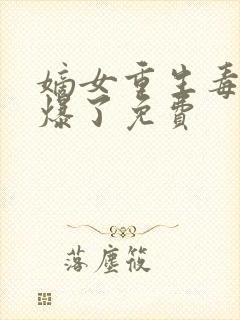 嫡女重生毒
爆了免费
落塵筱